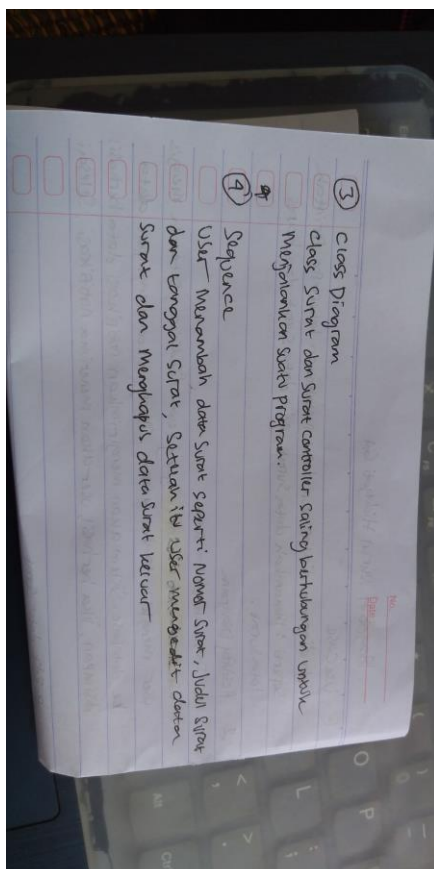 No.
Date
③ Class Diagram
Class Surat dan Surat Controller saling berhubungan untuk
Menjalankan suatu program.
④ Sequence
User Menambah data surat seperti Nomor Surat, Judul Surat
dan tanggal Surat, Setelah itu user mengedit data
Surat dan Menghapus data Surat keluar
O
P
L
<
>
Alt